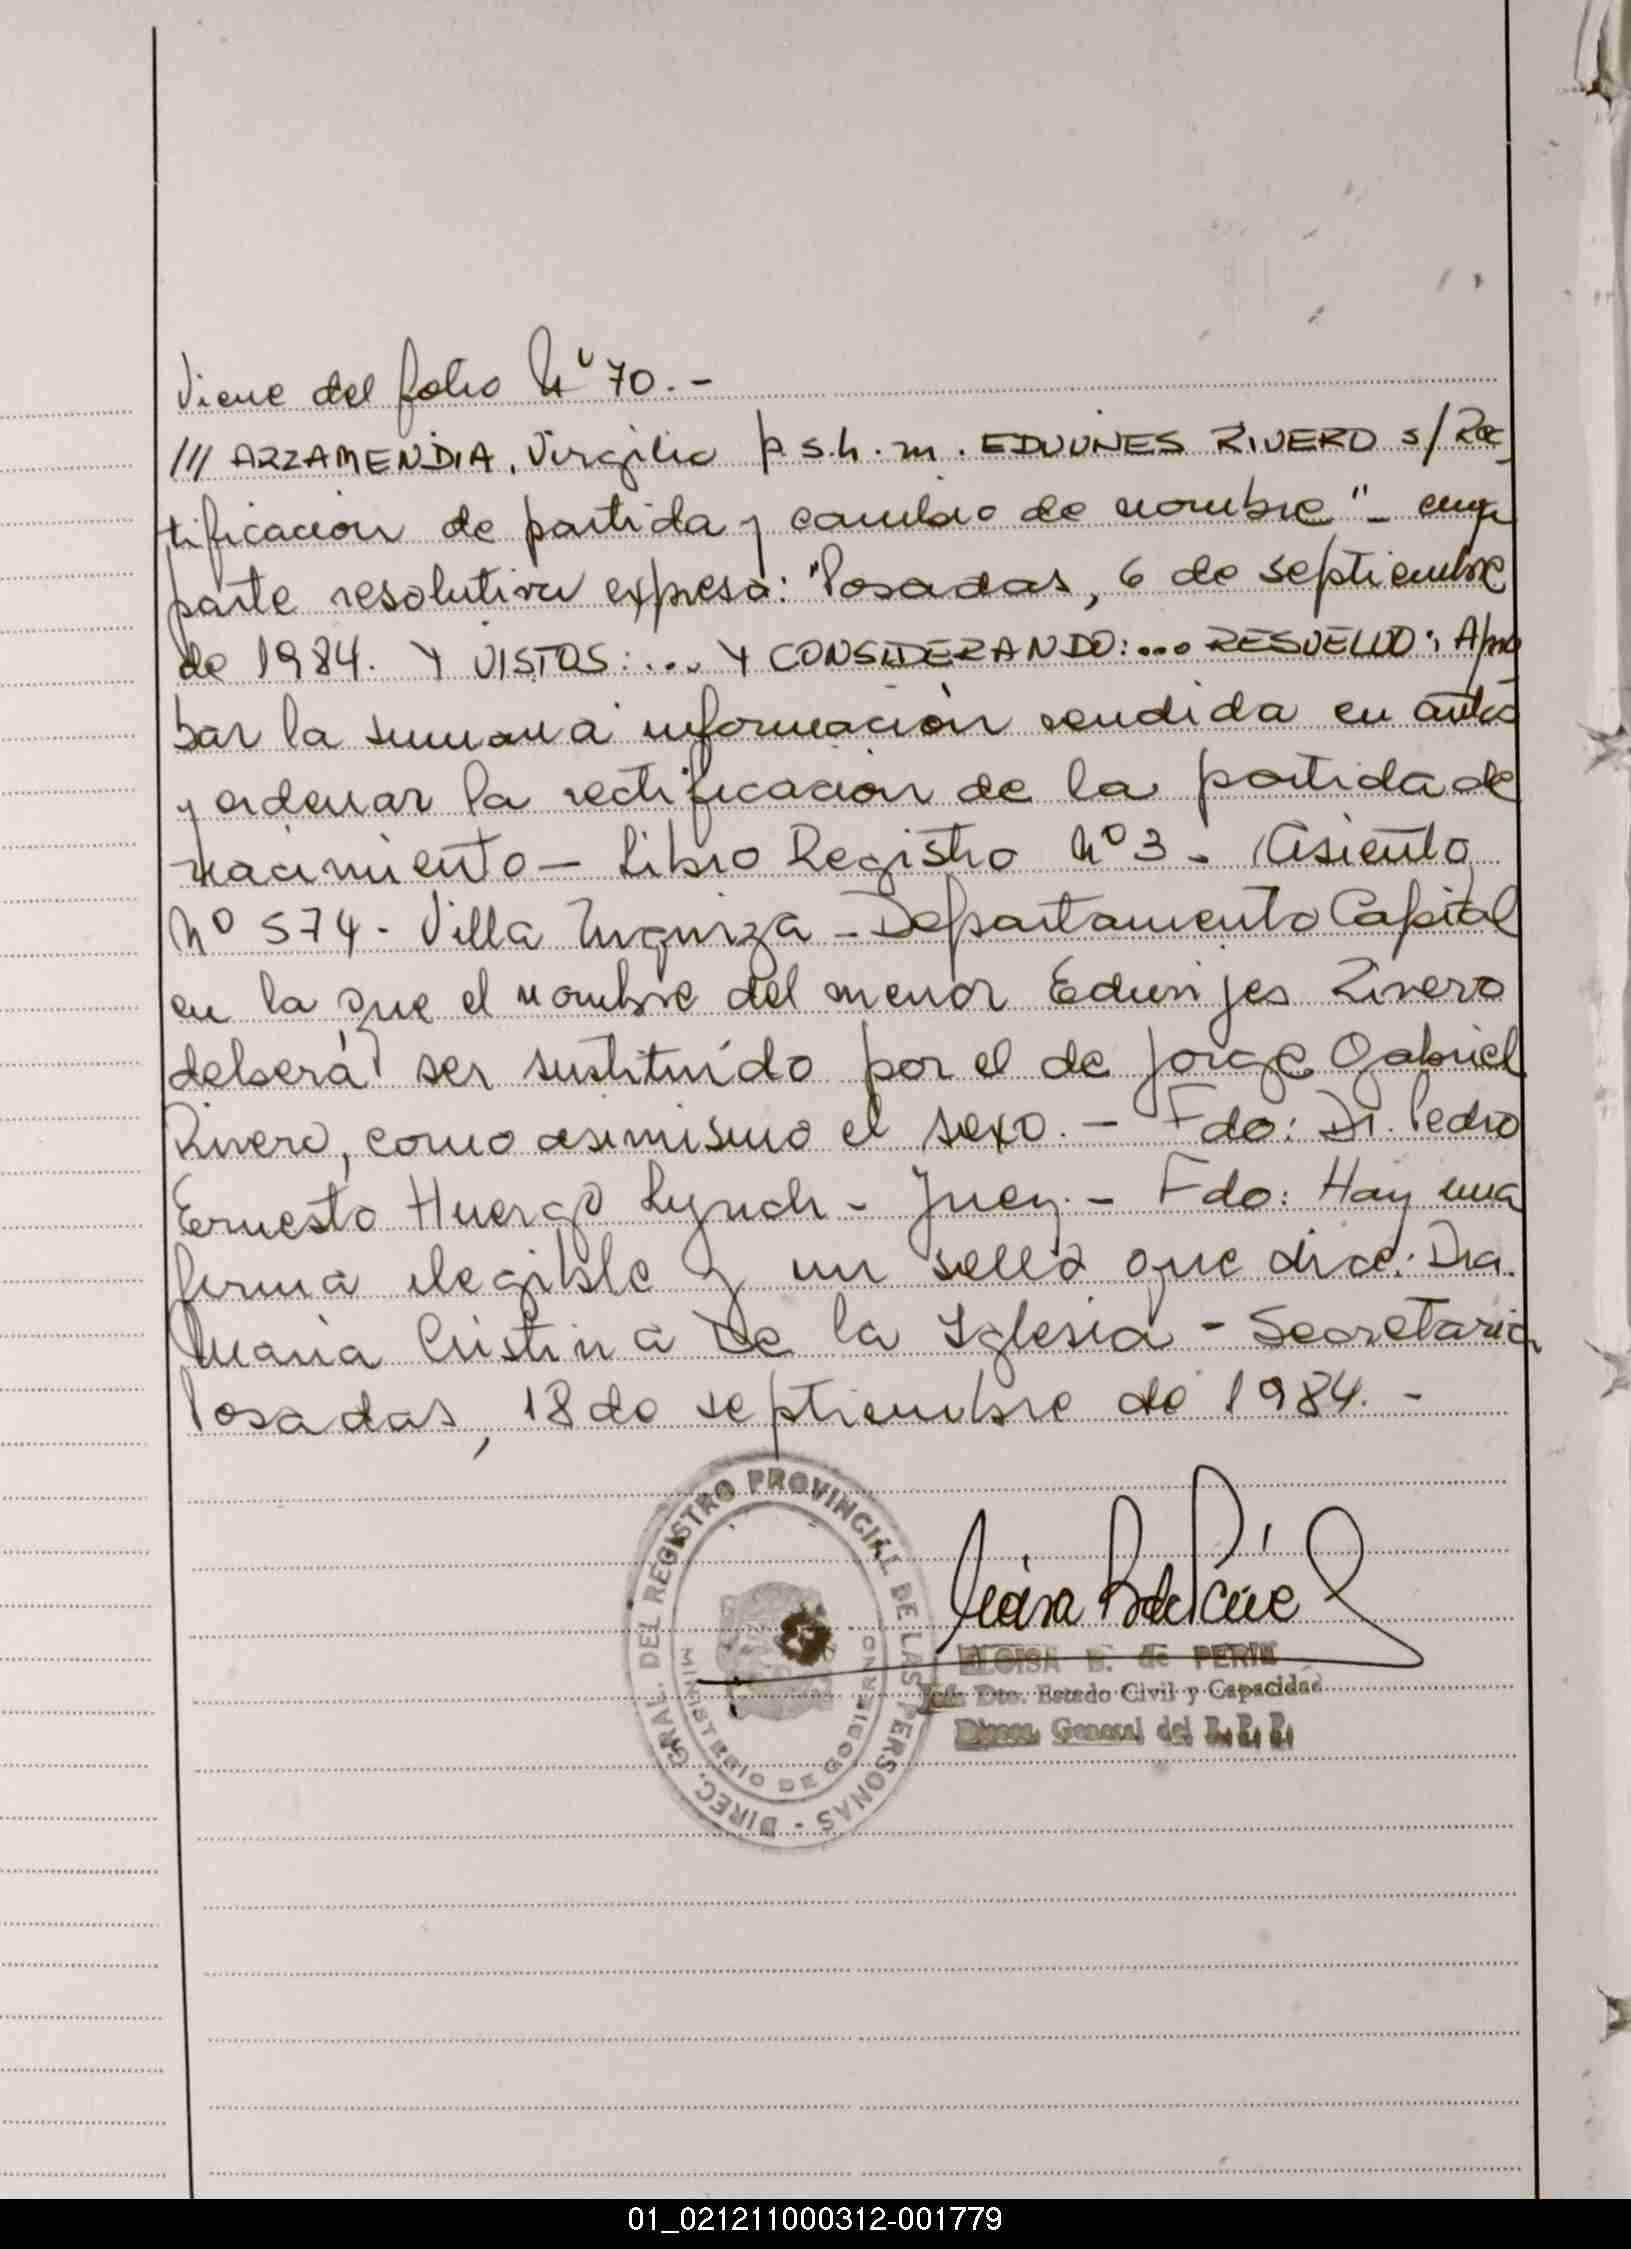 Viene del folio Nº 70.-
/// ARZAMENDIA, Virgilio p s.h.m. EDUVINES RIVERO s/Rec
tificación de partida y cambio de nombre"- cuya
parte resolutiva expresa: "Posadas, 6 de septiembre
de 1984. Y VISTOS:... Y CONSIDERANDO:... RESUELVO: Apro
bar la sumaria información rendida en autos
y ordenar la rectificación de la partida de
nacimiento- Libro Registro Nº 3- Asiento
Nº 574- Villa Urquiza - Departamento Capital
en la que el nombre del menor Eduvijes Rivero
deberá ser sustituído por el de Jorge Gabriel
Rivero, como asimismo el sexo.- Fdo: Dr. Pedro
Ernesto Huergo Lynch - Juez.- Fdo: Hay una
firma ilegible y un sello que dice: Dra.
Maria Cristina De la Iglesia - Secretaria
Posadas, 18 de septiembre de 1984.-
DIREC. GRAL. DEL REGISTRO PROVINCIAL DE LAS PERSONAS -
MINISTERIO DE GOBIERNO
ELOISA B. de PERIE
Jefe Dto. Estado Civil y Capacidad
Direcc. General del R. P. P.
01_021211000312-001779